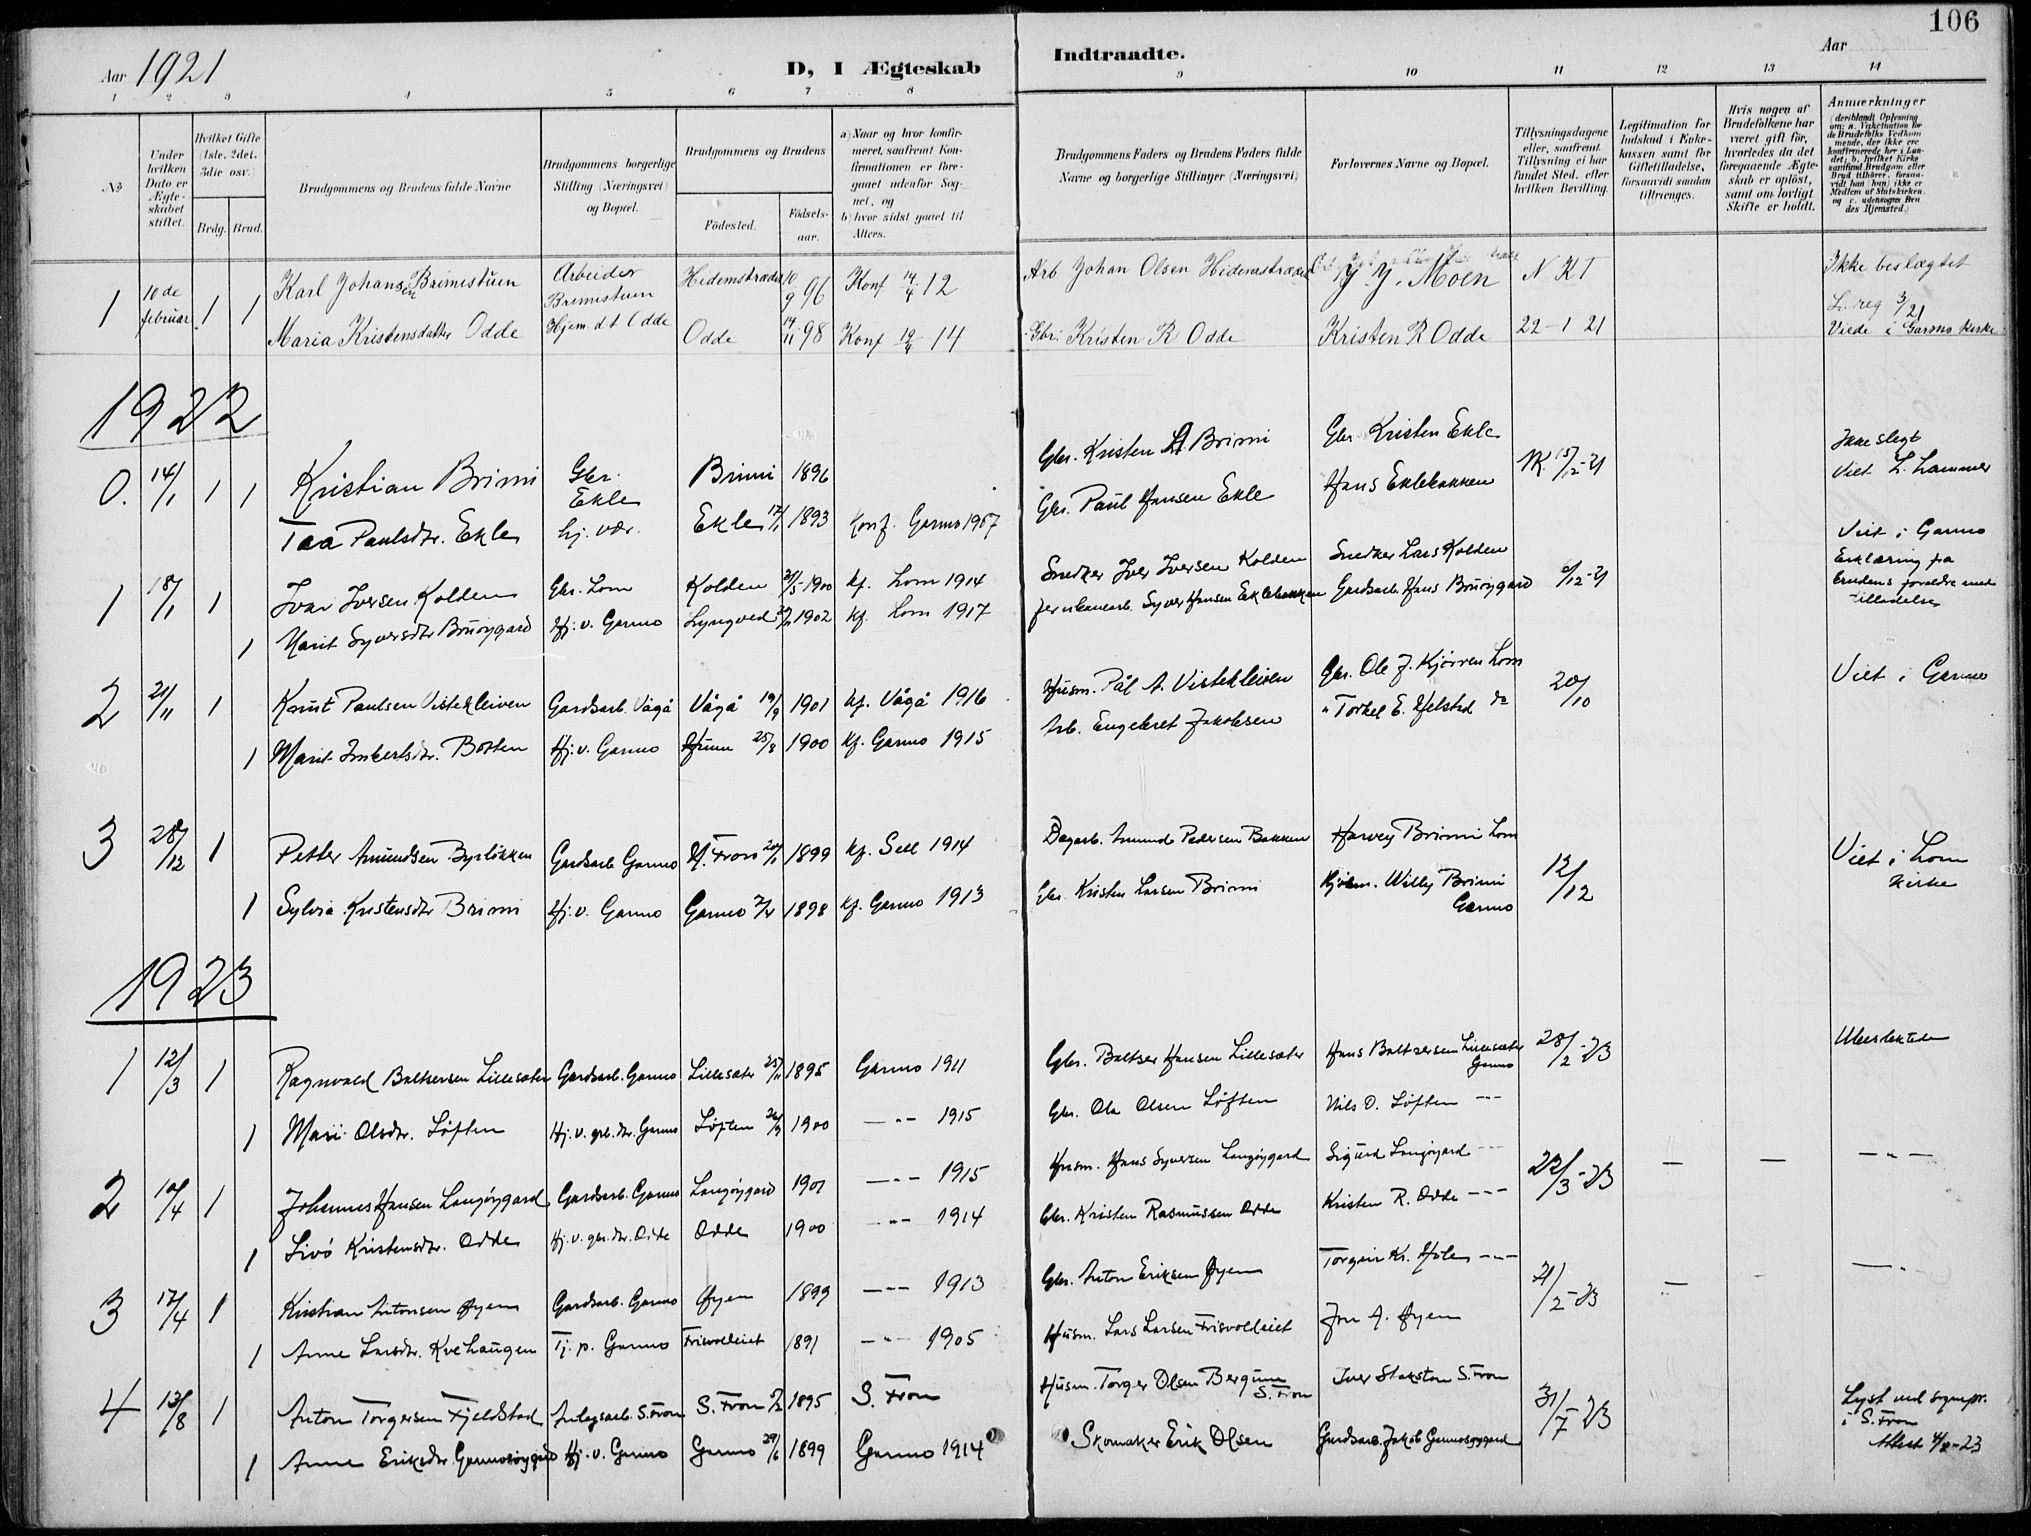 106
Aar 1921
D, I Ægteskab
Indtraadte.
Aar
1 2 3 4 5 6 7 8 9 10 11 12 13 14
No
Under hvilken Dato er Ægteskabet stiftet.
Hvilket Gifte (1ste, 2det, 3die osv.)
Brdg. Brud.
Brudgommens og Brudens fulde Navne
Brudgommens borgerlige Stilling (Næringsvei) og Bopæl.
Brudgommens og Brudens
Födested.
Födselsaar.
a) Naar og hvor konfirmeret, saafremt Konfirmationen er foregaaet udenfor Sognet, og
b) hvor sidst gaaet til Alters.
Brudgommens Faders og Brudens Faders fulde Navne og borgerlige Stillinger (Næringsvei)
Forlovernes Navne og Bopæl.
Tillysningsdagene eller, saafremt Tillysning ei har fundet Sted, efter hvilken Bevilling.
Legitimation for Indskud i Enkekassen samt for Giftetilladelse, forsaavidt saadan tiltrænges.
Hvis nogen af Brudefolkene har været gift för, hvorledes da det foregaaende Ægteskab er oplöst, samt om lovligt Skifte er holdt.
Anmærkninger
1 10de februar 1 1 Karl Johansen Brimistuen Arbeider Brimistuen Hidemstrædet 10/9 96 Konf 14/4 12 Arb Johan Olsen Hidemstrædet J. J. Moen N K T Ikke beslægtet
Maria Kristensdatter Odde Hjem. d.t. Odde Odde 14/11 98 Konf 12/4 14 Gbr. Kristen R Odde Kristen R Odde 22-1 21 L. reg 3/21
Viede i Garmo kirke
1922
0. 14/1 1 1 Kristian Brimi Gbr. Ekle Brimi 1896 Gbr. Kristen Brimi Gbr Kristen Ekle 15/12-21 Ikke slegt
Viet L. hammer
Taa Paulsdtr. Ekle hj. vær. Ekle 12/1 1893 Konf. Garmo 1907 Gbr. Paul Hansen Ekle Hans Eklebakken
1 18/1 1 Ivar Iversen Kolden Gbr. Lom Kolden 1900 kf. Lom 1914 Snedker Iver Iversen Kolden Snedker Lars Kolden /12-21 Viet i Garmo
Erklæring fra
brudens forældre med
tilladelse
1 Marit Syversdtr Bruøygard Hj. v. Garmo Lyngved 1902 kf. Lom 1917 Jernbanearb. Syver Hansen Eklebakken Gardsarb. Hans Bruøygard
2 21/11 1 Knut Paulsen Vistekleiven Gardsarb. Vågå Vågå 19/9 1901 kf. Vågå 1916 Husm. Pål A. Vistekleiven Gbr. Ole J. Kjörren Lom 20/10 Viet i Garmo
1 Marit Imbertsdtr. Botten Hj. v. Garmo 25/8 1900 kf. Garmo 1915 Arb. Engebret Jakobsen " Torkel E. Helstad do
3 28/12 1 Petter Amundsen Byrløkken Gardsarb. Garmo N. Fron 1899 kf. Sell 1914 Dagarb. Amund Pedersen Bakken Harvey Brimi Lom 12/12 Viet i Lom
kirke
1 Sylvia Kristensdtr Brimi Hj. v. Garmo Garmo 1898 kf. Garmo 1913 Gbr. Kristen Larsen Brimi Kjøbm. Willy Brimi Garmo
1923
1 12/3 1 Ragnvald Baltsersen Lillesæter Gardsarb. Garmo Lillesæter 1895 Garmo 1911 Gbr. Baltser Hansen Lillesæter Hans Baltsersen Lillesæter Garmo 28/2-23 Ubeslektede
1 Mari Olsdtr. Løften Hj. v. gb. dtr. Garmo Løften 26/9 1900 -"- 1915 Gbr. Ola Olsen Løften Nils O. Løften -"-
2 10/4 1 Johannes Hansen Langøygard Gardsarb. Garmo Langøygard 1901 -"- 1915 Husm. Hans Syversen Langøygard Sigurd Langøygard -"- 22/3-23 — — -"-
1 Livø Kristensdtr. Odde Hj. v. gbr. dtr. Odde Odde 1900 -"- 1914 Gbr. Kristen Rasmussen Odde Kristen R. Odde -"-
3 17/4 1 Kristian Antonsen Øyen Gardsarb. Garmo Øyen 1899 -"- 1913 Gbr. Anton Eriksen Øyen Torgeir Kr. Hole -"- 21/2-23 — -"-
1 Anne Larsdtr. Kvehaugen Tj. p. Garmo Frisvolleiet 1891 -"- 1905 Husm. Lars Larsen Frisvolleiet Jon A. Øyen
4 13/8 1 Anton Torgersen Fjeldstad Anlegsarb. S. Fron S. Fron 1895 S. Fron Husm. Torger Olsen Bergum S. Fron Iver Stokstad S. Fron 31/7-23 Lyst ved sognepr.
i S. Fron
Attest 4/8-23
1 Anne Eriksdtr. Garmosøygard Hj. v. Garmo Garmo 29/6 1899 Garmo 1914 Skomaker Erik Olsen Gardsarb. Jakob Garmosøygard